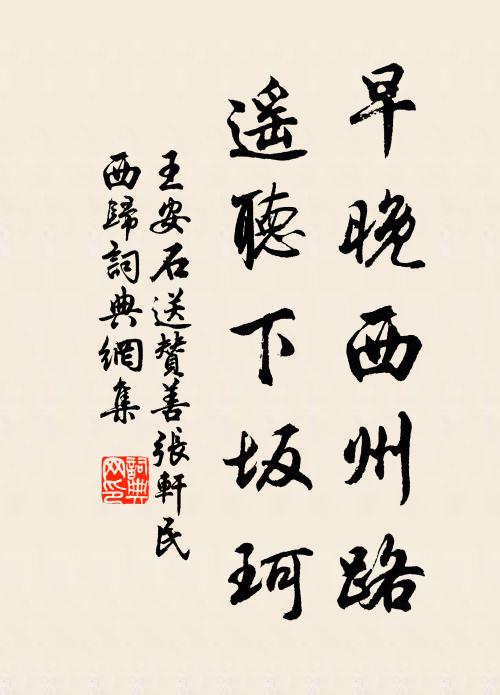 早晚西州路
遥聽下坂珂
王安石送贊善張軒民
西歸詞典網集
詞典网印